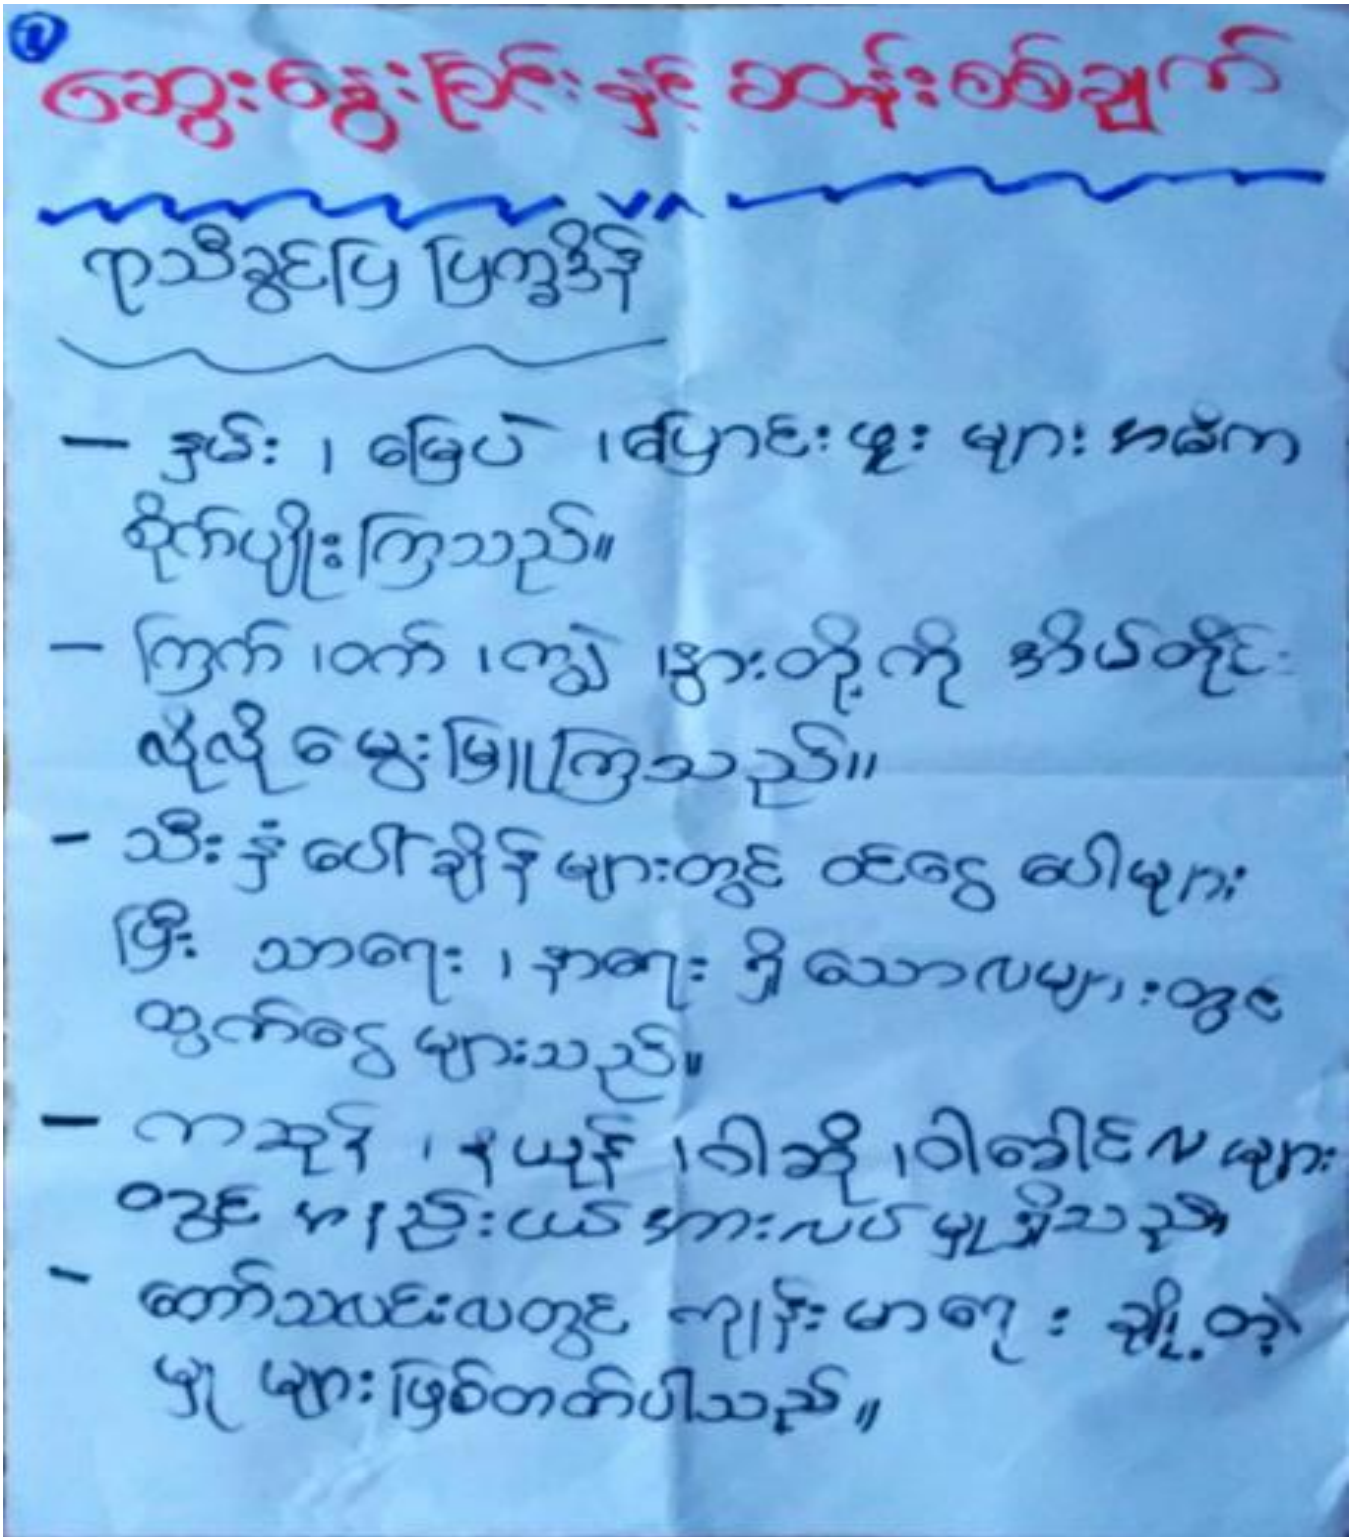 ၃
ဆွေးနွေးခြင်းနှင့် ဆန်းစစ်ချက်
ရာသီခွင်ပြ ပြက္ခဒိန်
– နှမ်း ၊ မြေပဲ ၊ ပြောင်းဖူး များ အဓိက
စိုက်ပျိုးကြသည်။
– ကြက် ၊ ဝက် ၊ ကျွဲ ၊ နွားတို့ကို အိမ်တိုင်း
လိုလို မွေးမြူကြသည်။
– သီးနှံပေါ်ချိန်များတွင် ဝင်ငွေ ပေါများ
ပြီး သာရေး ၊ နာရေး ရှိသောလများတွင်
ထွက်ငွေ များသည်။
– ကဆုန် ၊ နယုန် ၊ ဝါဆို ၊ ဝါခေါင်လ များ
တွင် အနည်းငယ် အားလပ်မှုရှိသည်။
– တော်သလင်းလတွင် ကျန်းမာရေး ချို့တဲ့
မှု များဖြစ်တတ်ပါသည်။